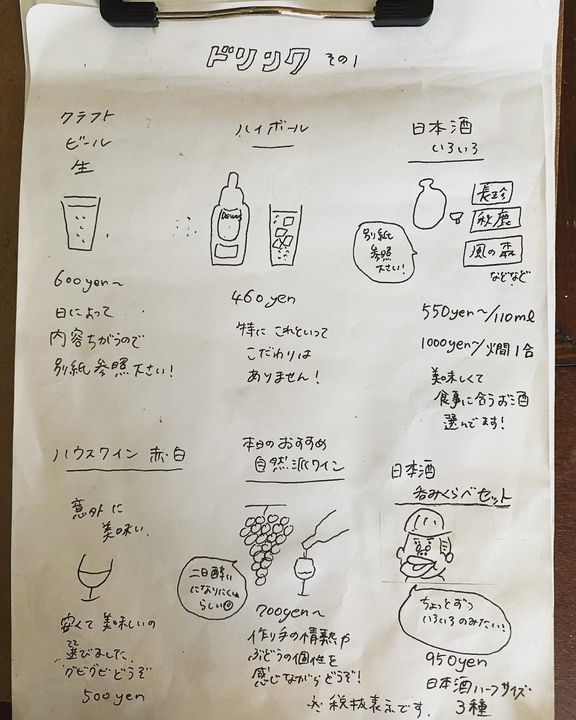 ドリンク その1
クラフト
ビール
生
600yen〜
日によって
内容ちがうので
別紙参照下さい!
ハイボール
Dewar's
460yen
特に これといって
こだわりは
ありません!
日本酒
いろいろ
長珍
秋鹿
風の森
などなど
別紙
参照
下さい!
550yen〜/110ml
1000yen〜/燗1合
美味しくて
食事に合うお酒
選んでます!
ハウスワイン 赤・白
意外に
美味い.
安くて美味しいの
選びました.
グビグビどうぞ
500yen
本日のおすすめ
自然派ワイン
二日酔い
になりにくい
らしい
700yen〜
作り手の情熱や
ぶどうの個性を
感じながらどうぞ!
日本酒
呑みくらべセット
ちょっとずつ
いろいろのみたい!
950yen
日本酒ハーフサイズ
3種
※税抜表示です.